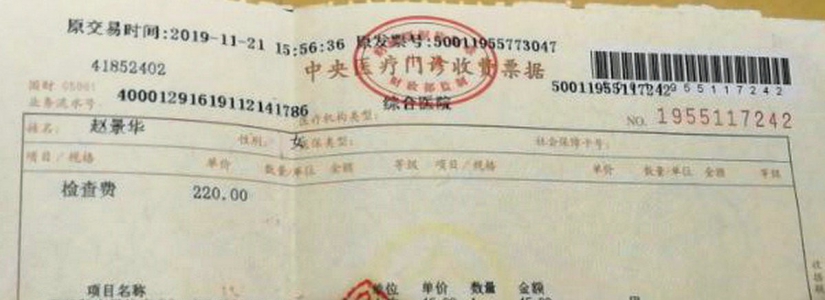 原交易时间:2019-11-21 15:56:36 原发票号:50011955773047
41852402
中央医疗门诊收费票据
财政部监制
500119551172429551172 42
国财 05001
业务流水号: 40001291619112141786
医疗机构类型: 综合医院
NO. 1955117242
姓名: 赵景华 性别: 女 医保类型: 社会保障卡号:
项目/规格 单价 数量/单位 金额 等级 项目/规格 单价 数量/单位 金额 等级
检查费 220.00
项目名称 单位 单价 数量 金额